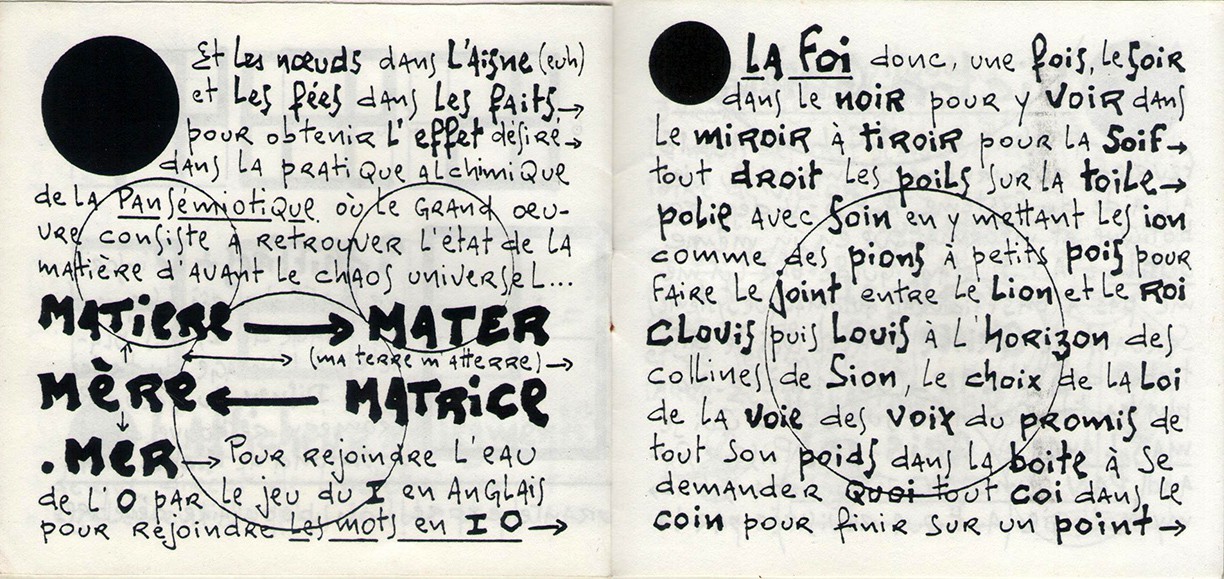 Et les nœuds dans L'Aisne (euh)
et Les fées dans Les faits→
pour obtenir L'effet désiré→
dans la pratique alchimique
de la Pansémiotique où le Grand oeu-
vre consiste à retrouver l'état de la
matière d'avant le chaos universel...
MATiere → MATER
(ma terre m'atterre)→
Mère ← MATrice
.Mer→ Pour rejoindre L'eau
de l'O par le jeu du I en Anglais
pour rejoindre les mots en I O→
LA Foi donc, une fois, le soir
dans le noir pour y voir dans
Le miroir à tiroir pour la Soif→
tout droit les poils sur la toile→
polie avec soin en y mettant Les ion
comme des pions à petits pois pour
faire Le joint entre Le Lion et Le Roi
CLOVIS puis Louis à L'horizon des
collines de Sion, Le choix de la Loi
de la voie des voix du promis de
tout son poids dans la boite à se
demander Quoi tout coi dans Le
coin pour finir sur un point→